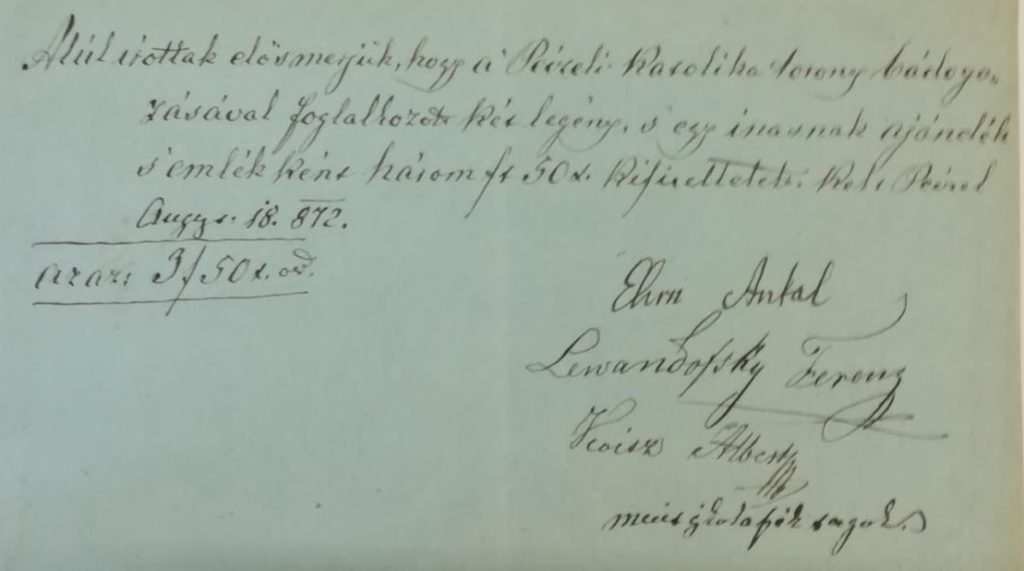 Alúl irottak elösmerjük, hogy a Péczeli Katolika torony bádogo,,
zásával foglalkozott két legény, s egy inasnak ajándék
s emlékként három ft 50 x. kifizettetett. Kelt Péczel
Augus. 18. 872.
azaz: 3 f 50 x. oé.
Antal
Lewandofsky Ferenz
Weisz Albert